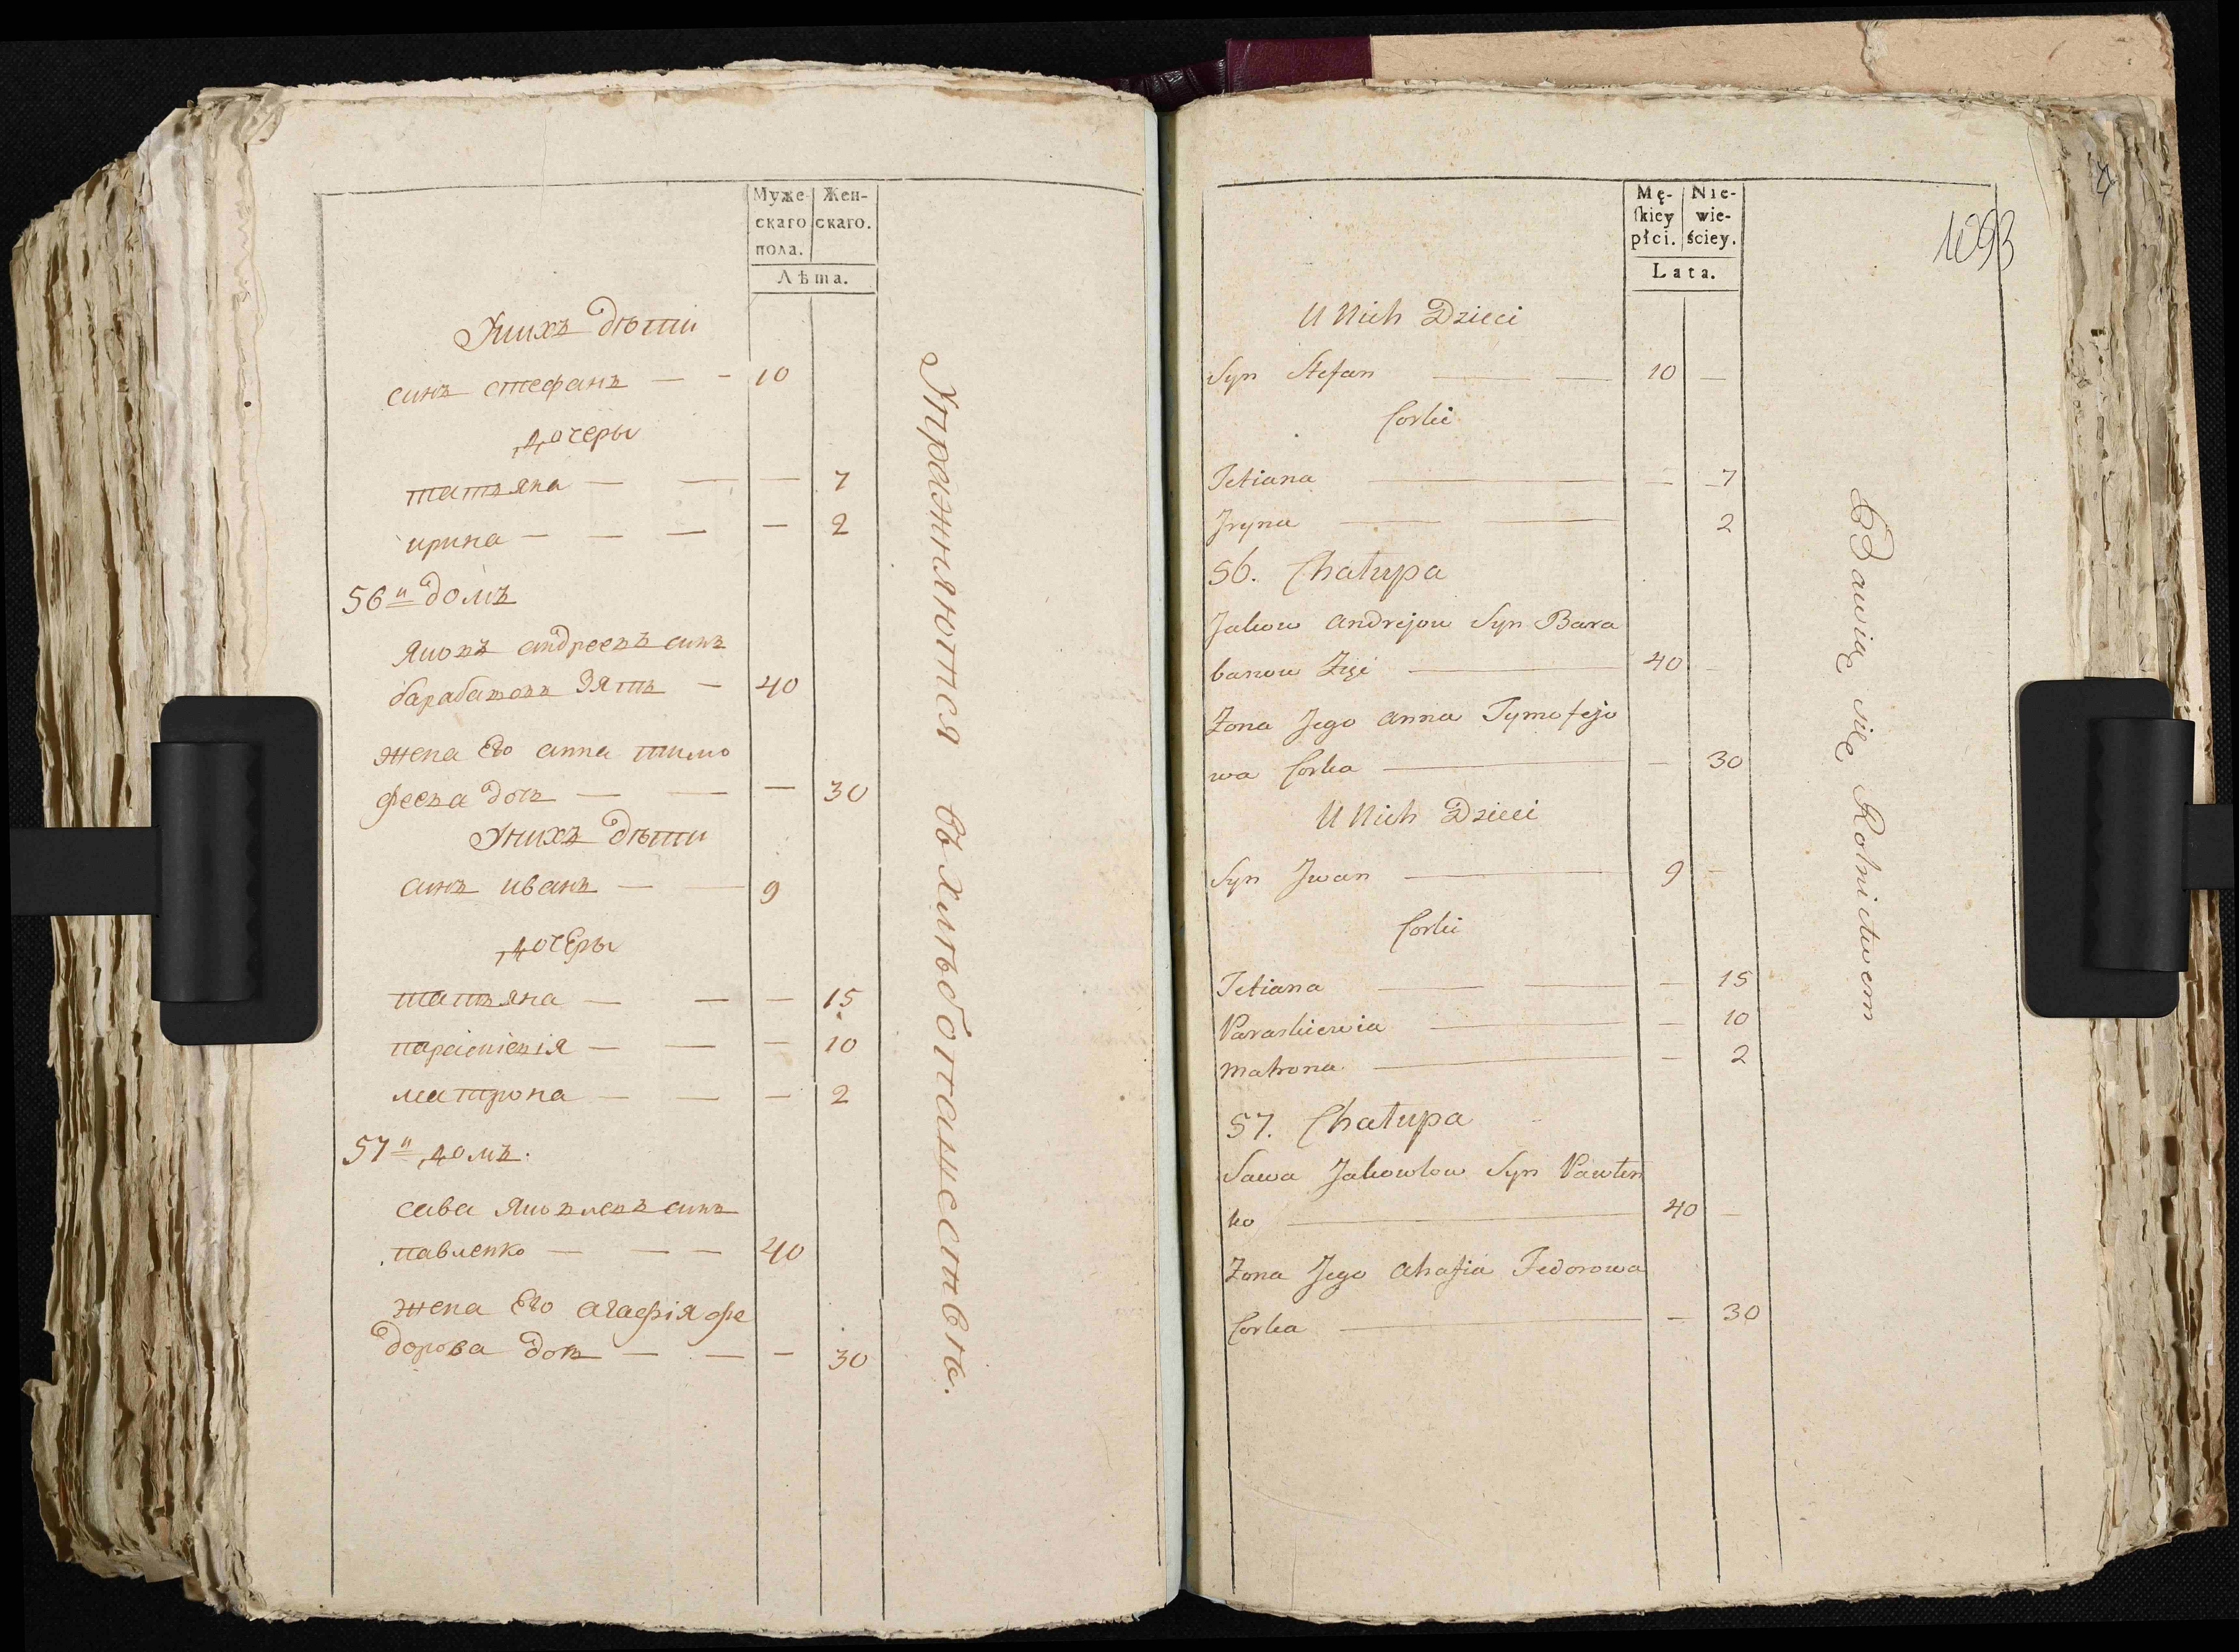 Муже- Жен-
скаго скаго.
пола.
Лѣта.
Унихъ дѣти
синъ стефанъ — - 10
дочеры
татъяна — — — 7
ирина — — — — 2
56й домъ
яковъ андреевъ синъ
барабановъ зять — 40
жена Его анна тимо
феева дочъ — — — 30
Унихъ дѣти
синъ иванъ — — 9
дочЕры
татъяна — — — 15
параскієвія — — — 10
матрона — — — 2
57й домъ.
сава яковлевъ синъ
павленко — — — 40
жена Его агафія фе
дорова дочъ — — — 30
Упражняются въ хлѣбопашествѣ.
Mę- Nie-
skiey wie-
płci. ściey.
Lata.
1093
U Nich Dzieci
Syn Stefan — — 10 —
Corki
Tetiana — — 7
Jryna — — 2
56. Chałupa
Jakow Andrejow Syn Bara
banow Zięć — 40 —
Zona Jego Anna Tymofejo
wa Corka — — 30
U Nich Dzieci
Syn Jwan — 9 —
Corki
Tetiana — — — 15
Paraskiewia — — 10
Matrona — — 2
57. Chałupa
Sawa Jakowlow Syn Pawłen
ko — 40 —
Zona Jego Ahafia Fedorowa
Corka — — 30
Bawią się Rolnictwem